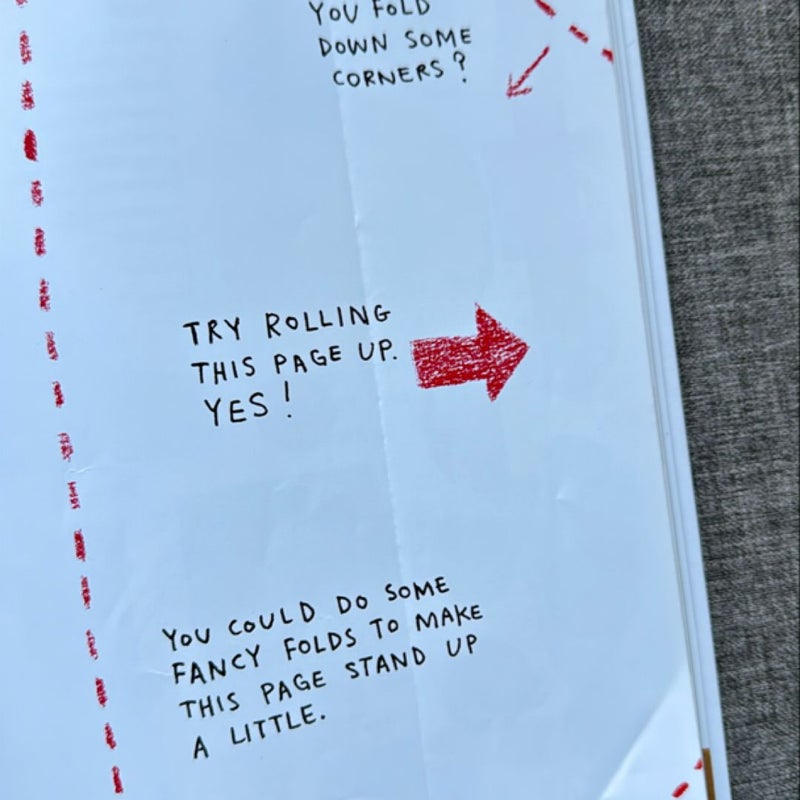 YOU FOLD
DOWN SOME
CORNERS?
TRY ROLLING
THIS PAGE UP.
YES!
YOU COULD DO SOME
FANCY FOLDS TO MAKE
THIS PAGE STAND UP
A LITTLE.